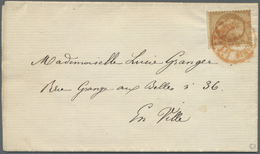 Mademoiselle Lucie Granger
Rue Grange aux Belles n° 36
En Ville